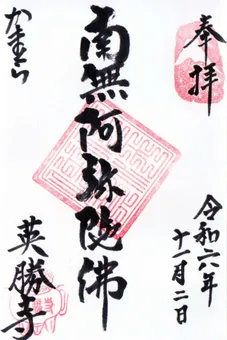 奉拝
令和六年
十一月二日
南無阿弥陀佛
かまくら
英勝寺